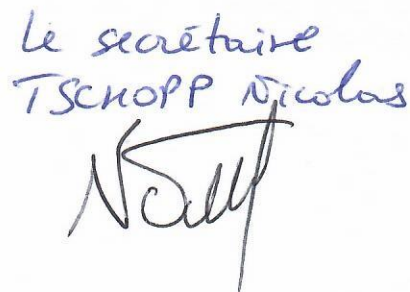 Le secrétaire
TSCHOPP Nicolas